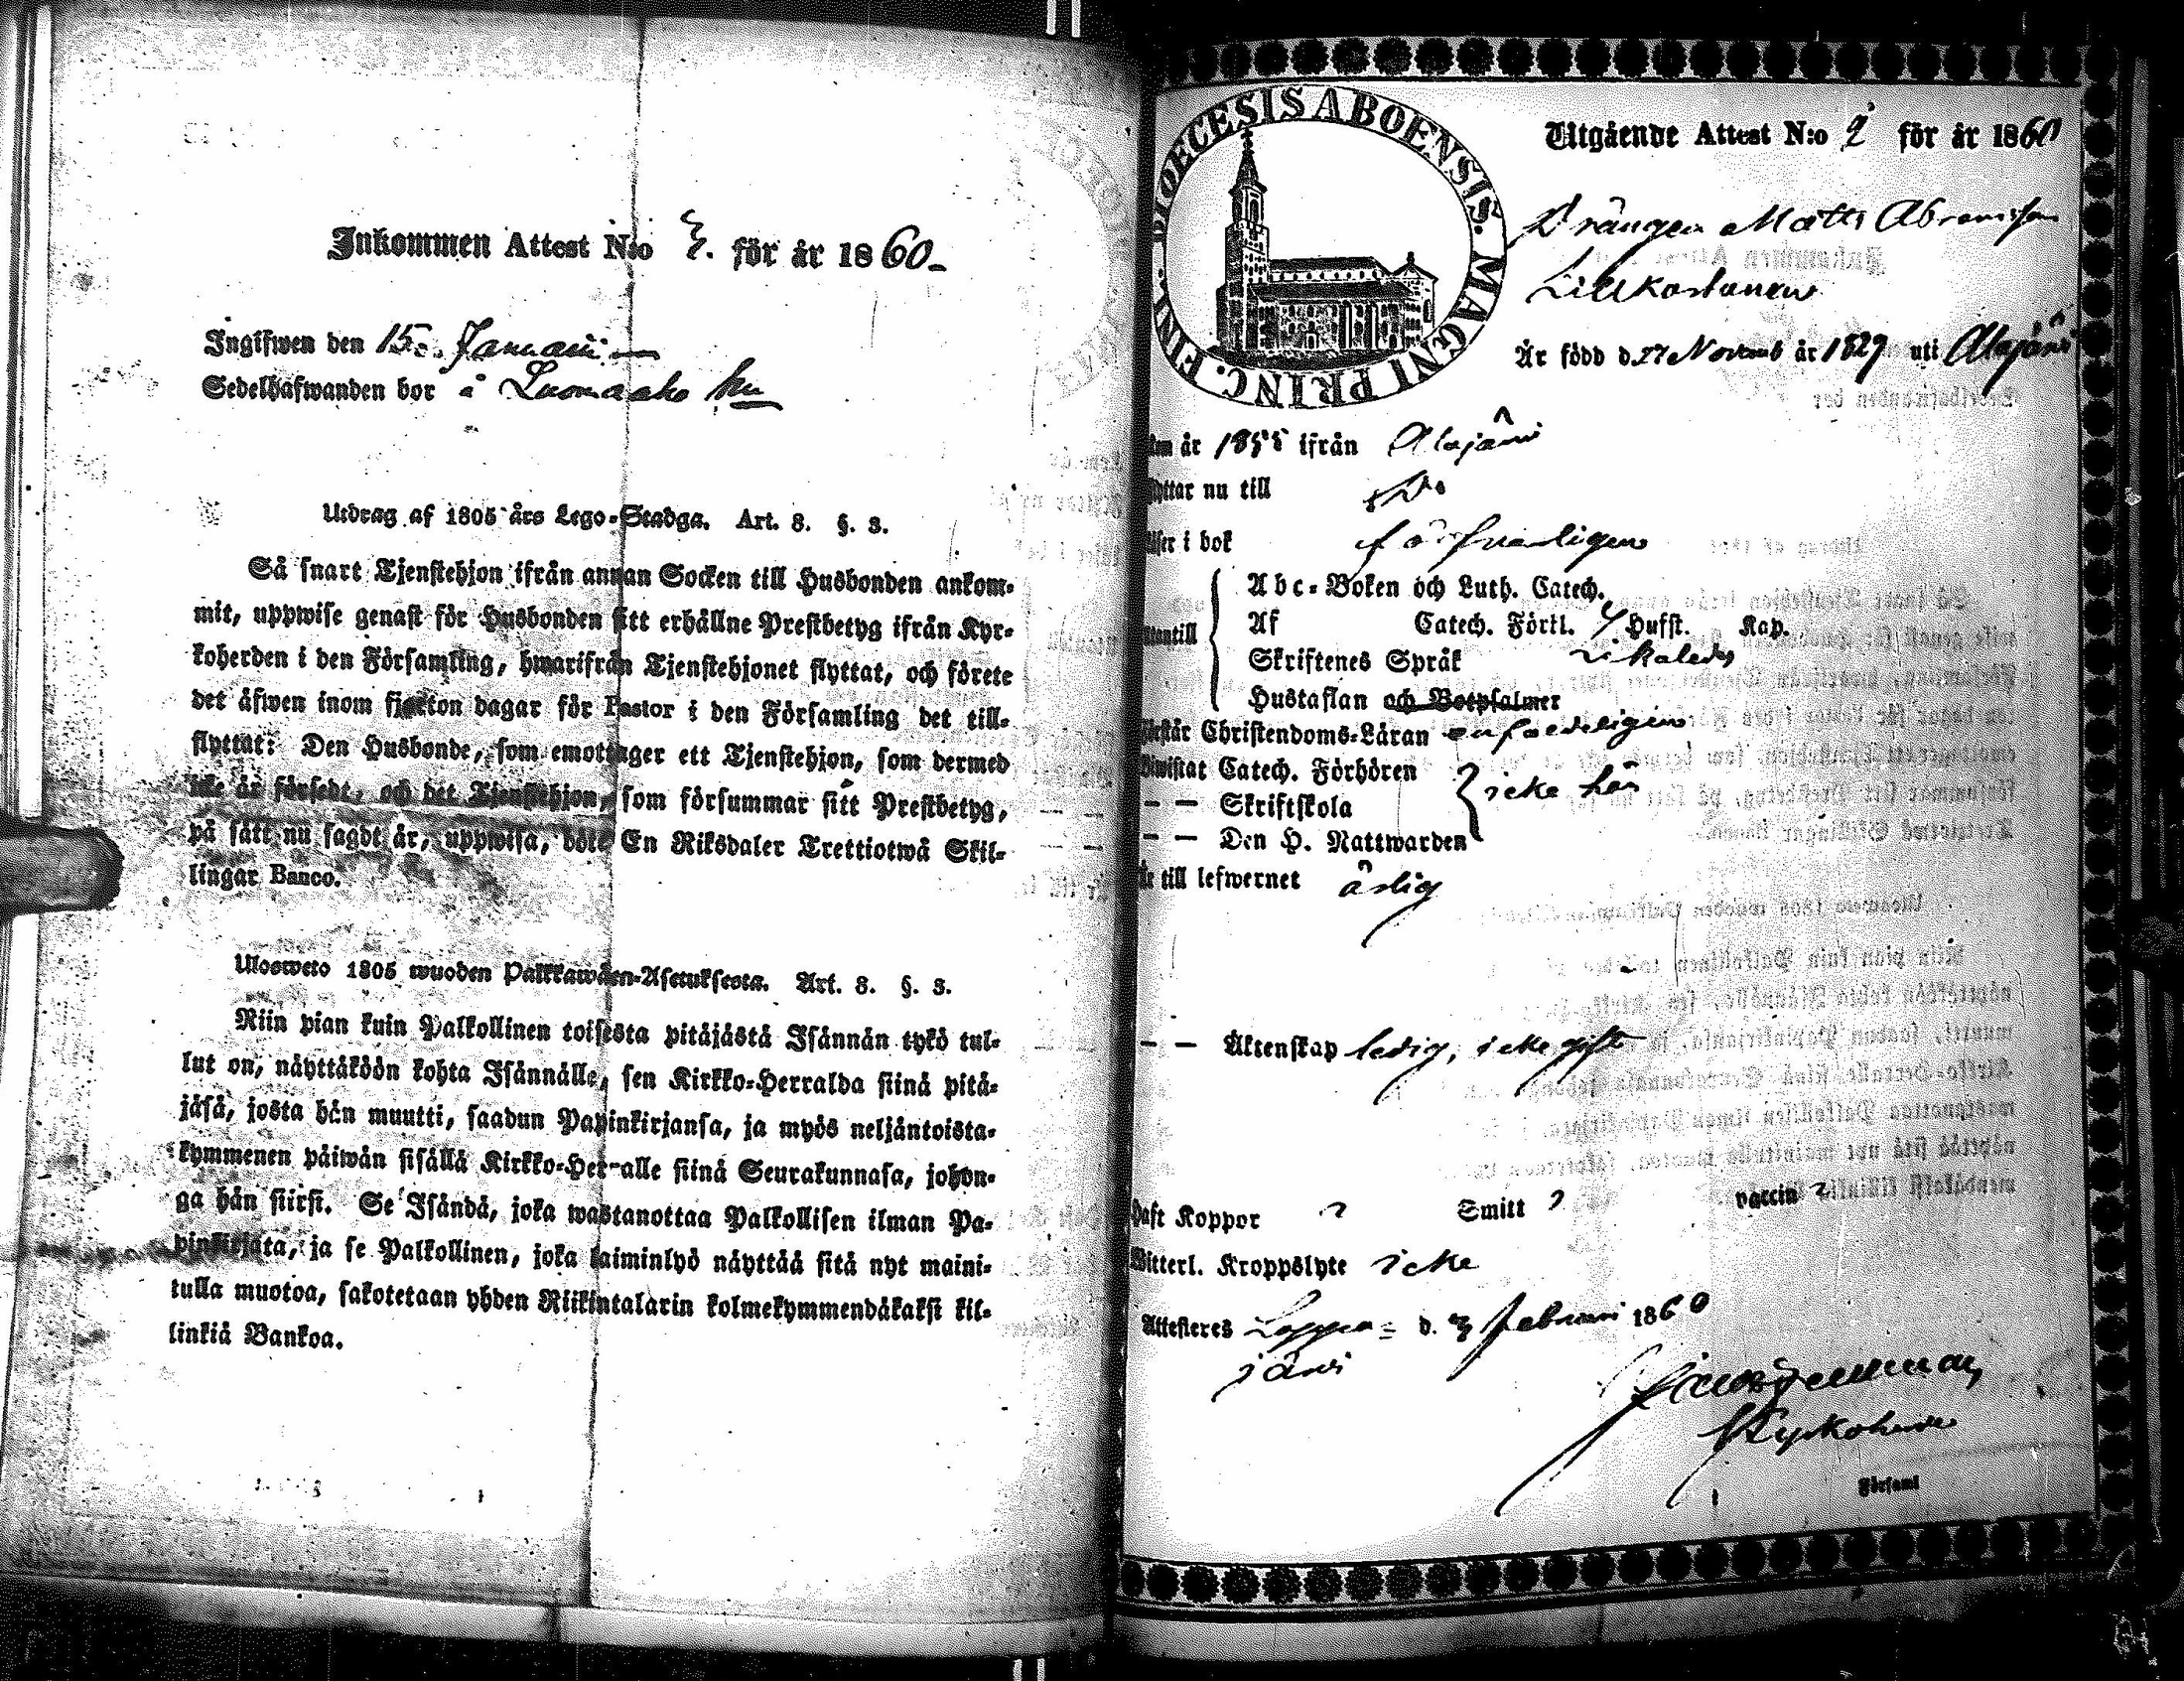 Inkommen Attest N:o 3. för år 1860.
Ingifwen den 15. Januari
Sedelhafwanden bor å Luoma aho
Utdrag af 1805 års Lego-Stadga. Art. 8. §. 3.
Så snart Tjenstehjon ifrån annan Socken till Husbonden ankom-
mit, uppwise genast för Husbonden sitt erhållne Prestbetyg ifrån Kyr-
koherden i den Församling, hwarifrån Tjenstehjonet flyttat, och förete
det äfwen inom fjorton dagar för Pastor i den Församling det till-
flyttat: Den Husbonde, som emottager ett Tjenstehjon, som dermed
icke är försedt, och det Tjenstehjon, som försummar sitt Prestbetyg,
på sätt nu sagdt är, uppwisa, böte En Riksdaler Trettiotwå Skil-
lingar Banco.
Ulosweto 1805 wuoden Palkkawäen-Asetuksesta. Art. 8. §. 3.
Niin pian kuin Palkollinen toisesta pitäjästä Isännän tykö tul-
lut on, näyttäköön kohta Isännälle, sen Kirkko-Herralda siinä pitä-
jäsä, josta hän muutti, saadun Papinkirjansa, ja myös neljäntoista-
kymmenen päiwän sisällä Kirkko-Herralle siinä Seurakunnasa, johon-
ga hän siirsi. Se Isändä, joka wastanottaa Palkollisen ilman Pa-
pinkirjata, ja se Palkollinen, joka laiminlyö näyttää sitä nyt maini-
tulla muotoa, sakotetaan yhden Riikintalarin kolmekymmendäkaksi kil-
linkiä Bankoa.
DIOECESIS ABOENSIS. MAGNI PRINC. FINL.
Utgående Attest N:o 2 för år 1860
Drängen Matts Abramsson
Lillkostamo
Är född d. 27 Novemb år 1829 uti Alajärvi
Kom år 1855 ifrån Alajärvi
Flyttar nu till Do
Läser i bok försvarligen
Abc-Boken och Luth. Catech.
Af Catech. Förkl. Hufst. Kap.
Utantill
Skriftenes Språk
Hustaflan och Botpsalmer
Förstår Christendoms-Läran enfaldeligen
Biwistat Catech. Förhören
— — Skriftskola icke här
— — Den H. Nattwarden
Är till lefwernet ärlig
— — Äktenskap ledig, icke gift
Haft Koppor ? Smitt ? vaccin ?
Witterl. Kroppslyte icke
Attesteres Lappa- d. 3 Februari 1860
järvi
Kyrkoherde
Församl